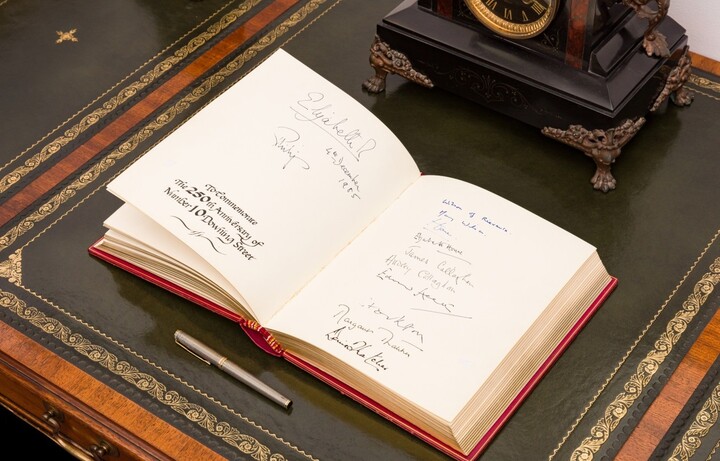 Elizabeth R
Philip
4th December
1985
To Commemorate
The 250th Anniversary of
Number 10 Downing Street
Wilson of Rievaulx
Mary Wilson
Elizabeth Home
James Callaghan
Audrey Callaghan
Edward Heath
Stockton
Margaret Thatcher
Denis Thatcher